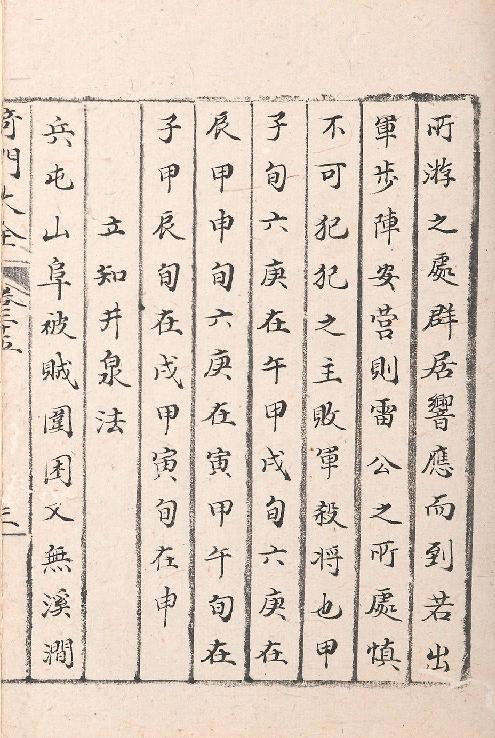 所游之處群居響應而到若出
軍步陣安營則雷公之所處慎
不可犯犯之主敗軍殺將也甲
子旬六庚在午甲戌旬六庚在
辰甲申旬六庚在寅甲午旬在
子甲辰旬在戌甲寅旬在申
立知井泉法
兵屯山阜被賊圍困又無溪澗
奇門大全 卷二十五 三